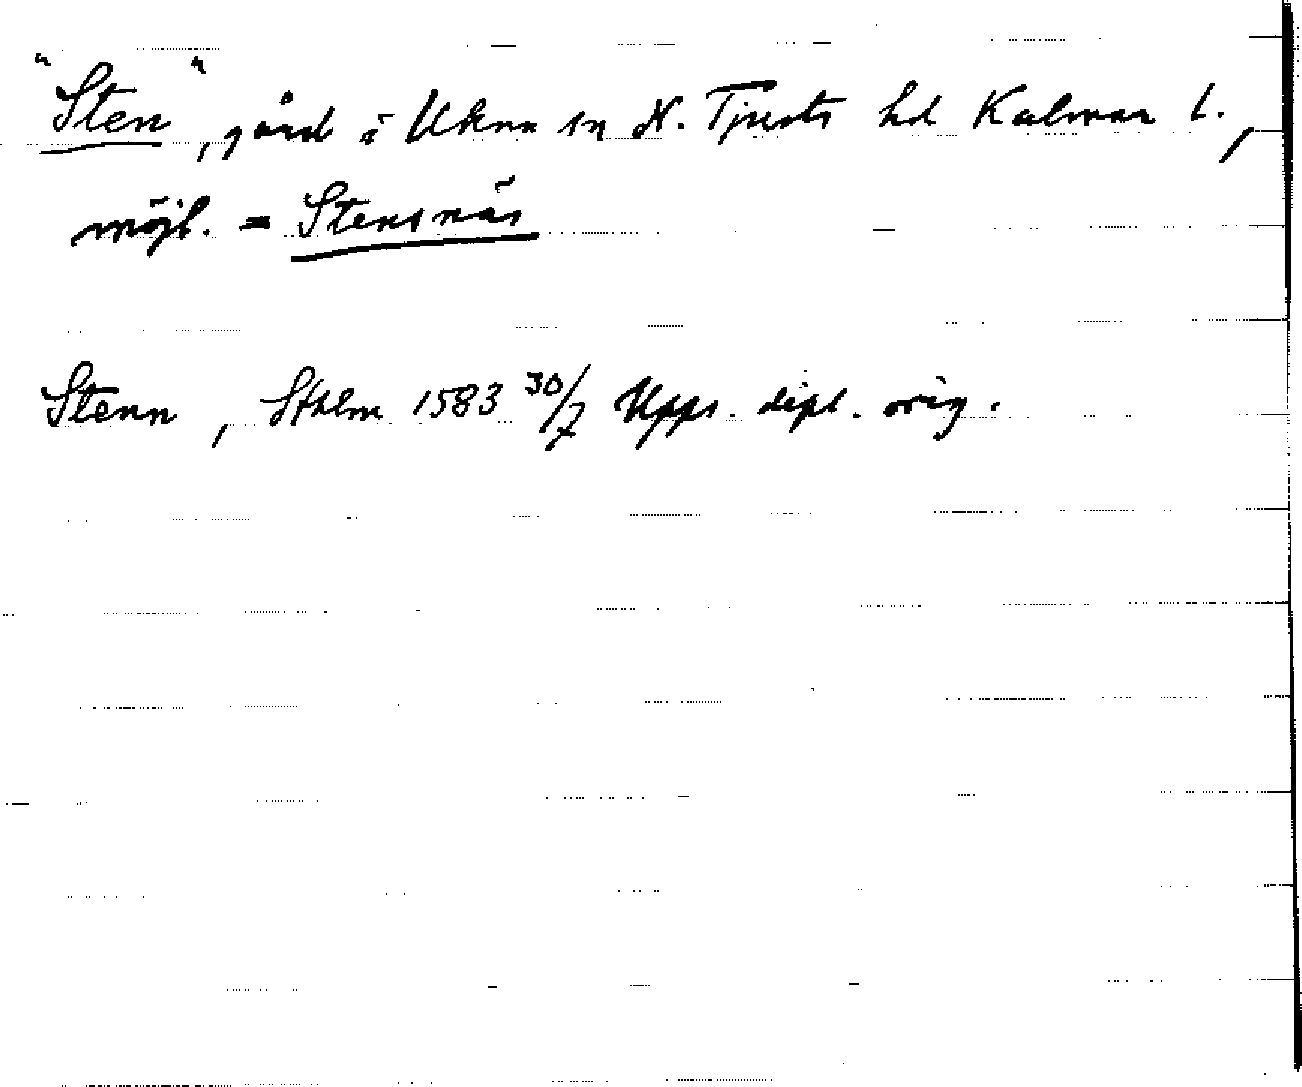 "Sten", gård i Ukna sn N. Tjusts hd Kalmar l.,
möjl. = Stensnäs
Stenn, Sthlm 1583 30/7 Upps. dipl. orig.